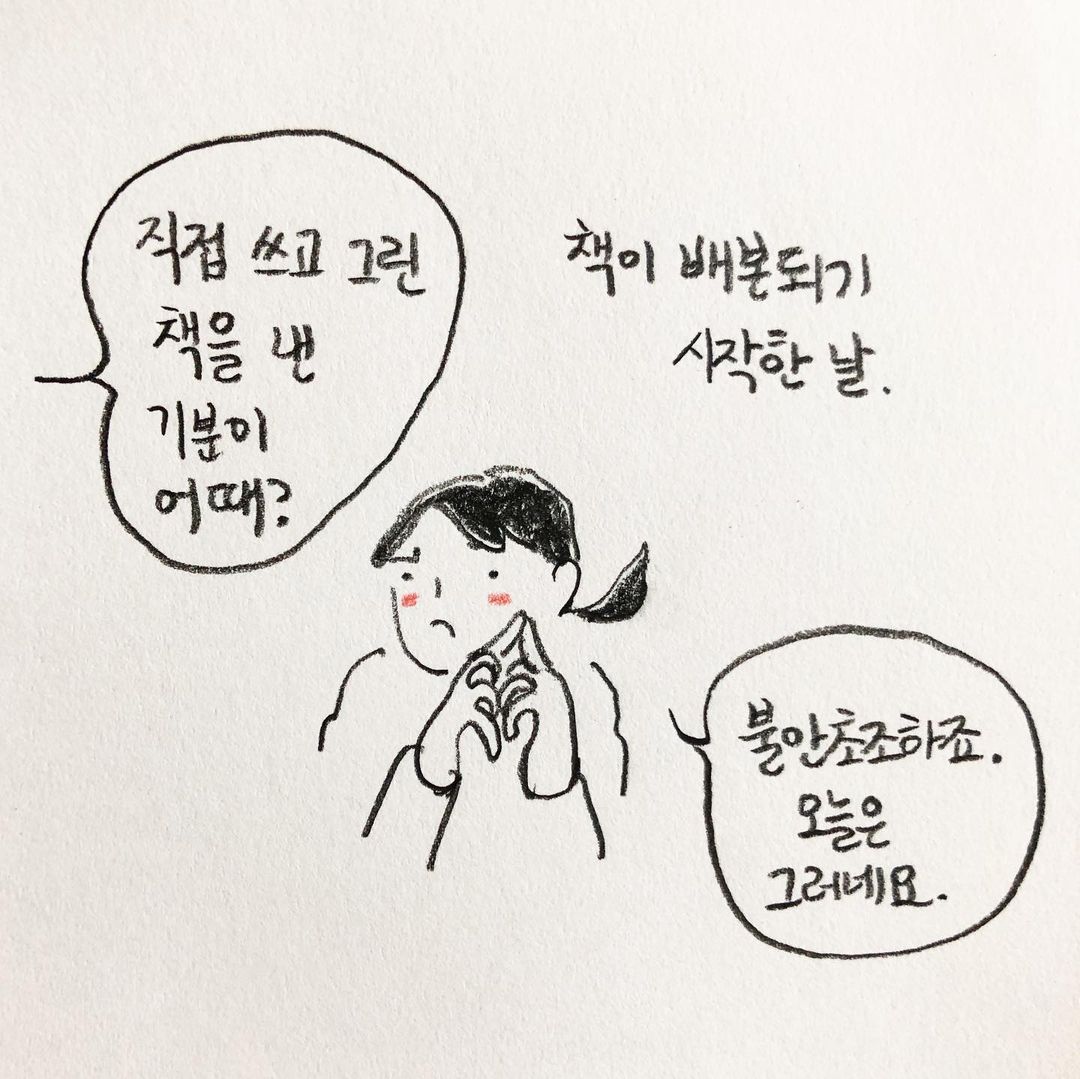 직접 쓰고 그린
책을 낸
기분이
어때?
책이 배본되기
시작한 날.
불안초조하죠.
오늘은
그러네요.